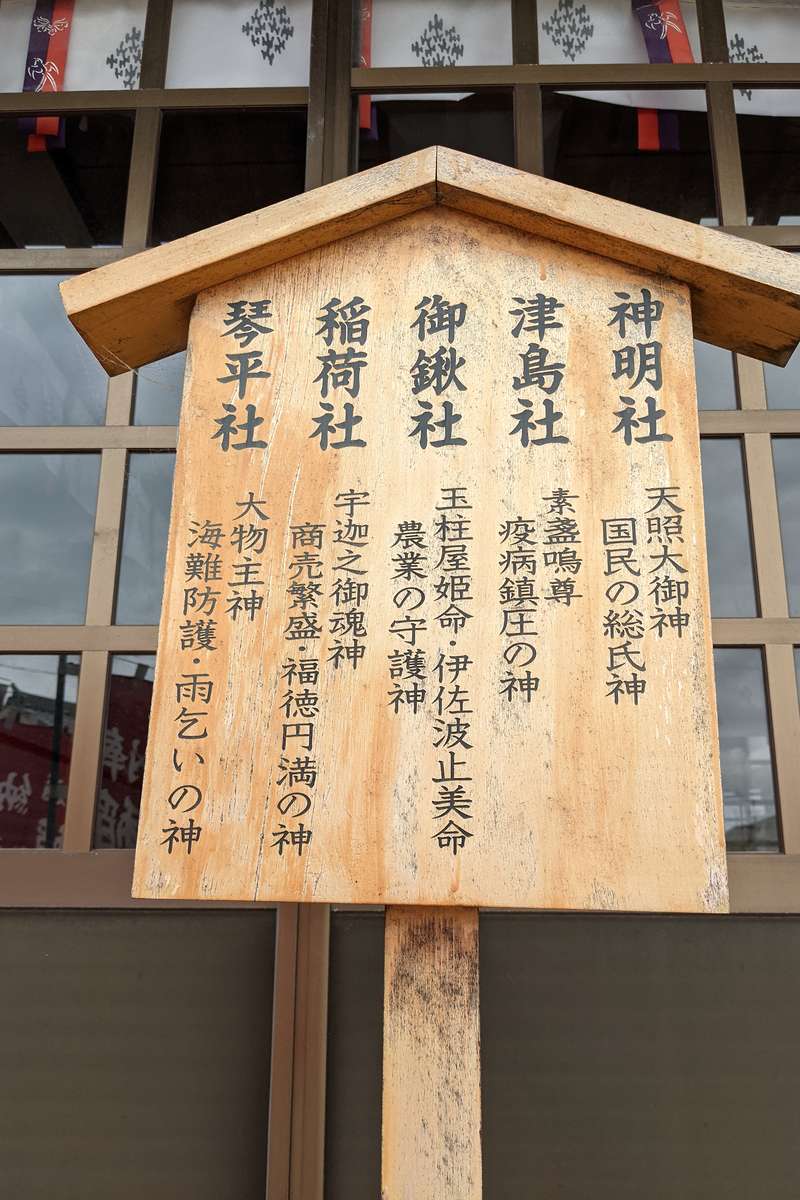 神明社
天照大御神
国民の総氏神
津島社
素盞嗚尊
疫病鎮圧の神
御鍬社
玉柱屋姫命・伊佐波止美命
農業の守護神
稲荷社
宇迦之御魂神
商売繁盛・福徳円満の神
琴平社
大物主神
海難防護・雨乞いの神